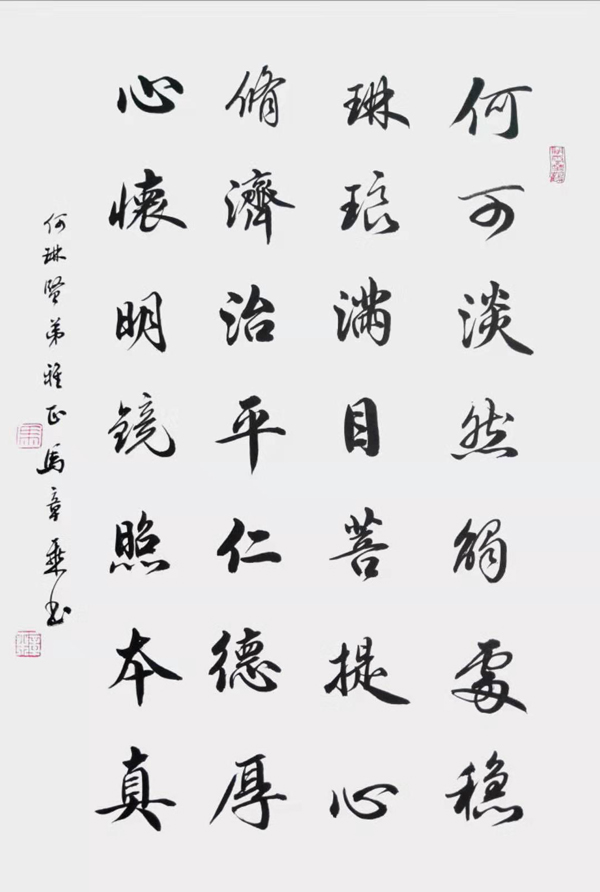 何可淡然触處穩
琳琅滿目菩提心
脩濟治平仁德厚
心懷明鏡照本真
何琳賢弟雅正 馬章乘书